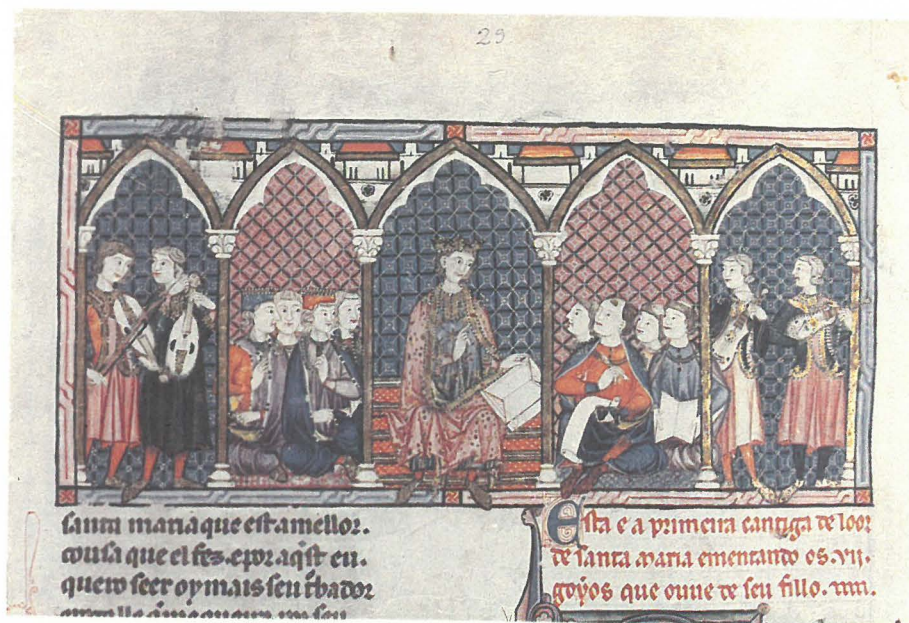 29
santa maria que est a mellor.
cousa que el fez. e por aq̇st eu.
quero seer oy mais seu t̃bador
Esta e a primeira cantiga de loor
de santa maria ementando os. vij.
goyos que ouue de seu fillo.